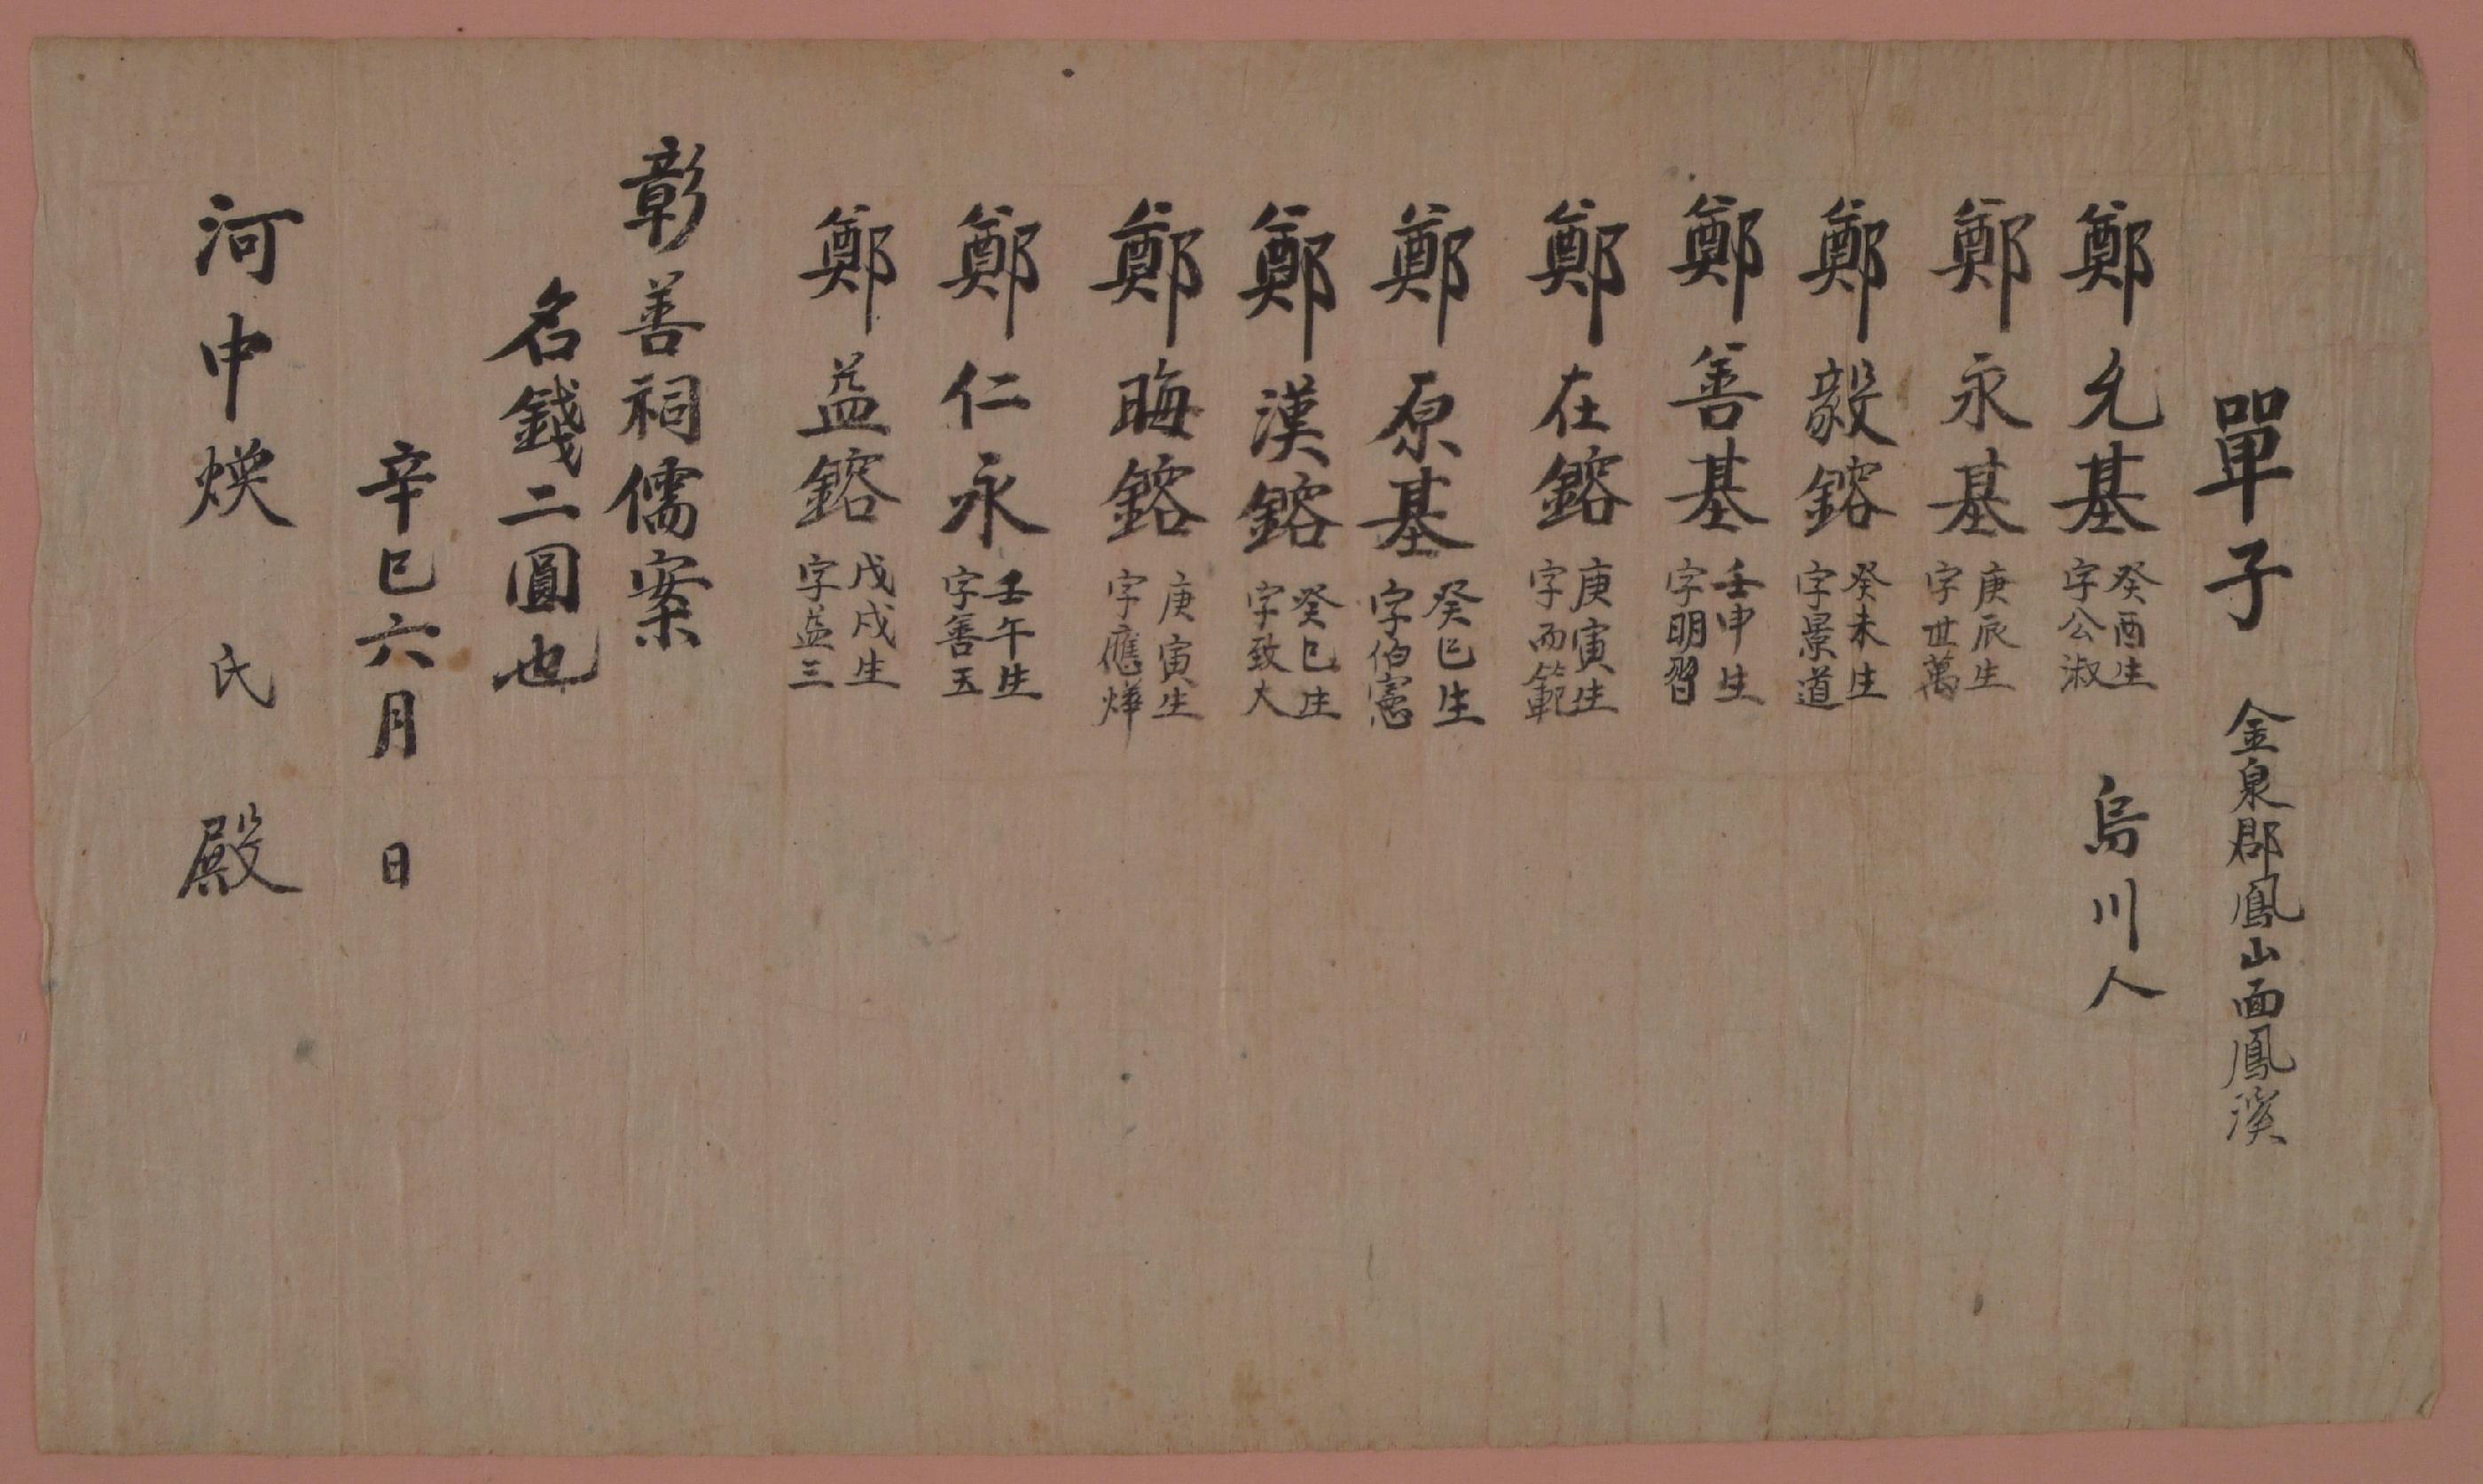 單子 金泉郡鳳山面鳳溪
鄭允基 癸酉生 字公淑 烏川人
鄭永基 庚辰生 字世萬
鄭毅鎔 癸未生 字景道
鄭善基 壬申生 字明習
鄭在鎔 庚寅生 字而範
鄭原基 癸巳生 字伯憲
鄭漢鎔 癸巳生 字致大
鄭晦鎔 庚寅生 字應燁
鄭仁永 壬午生 字善五
鄭益鎔 戊戌生 字益三
彰善祠儒案
名錢二圓也
辛巳六月 日
河申煐 氏 殿